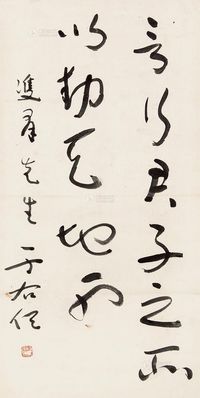 言行君子之所
以動天地也
雙羣先生 于右任